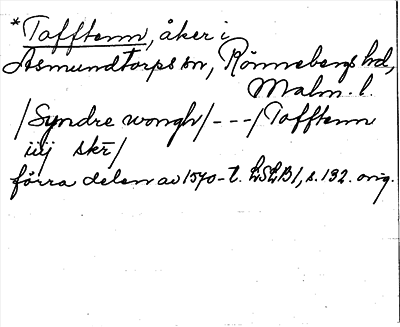 *Tofftenn, åker i
Asmundtorps sn, Rönnebergs hd,
Malm. l.
/Syndre wongh/---/Tofftenn
iiij skr/
förra delen av 1570-t. LSLB1, s. 192. orig.